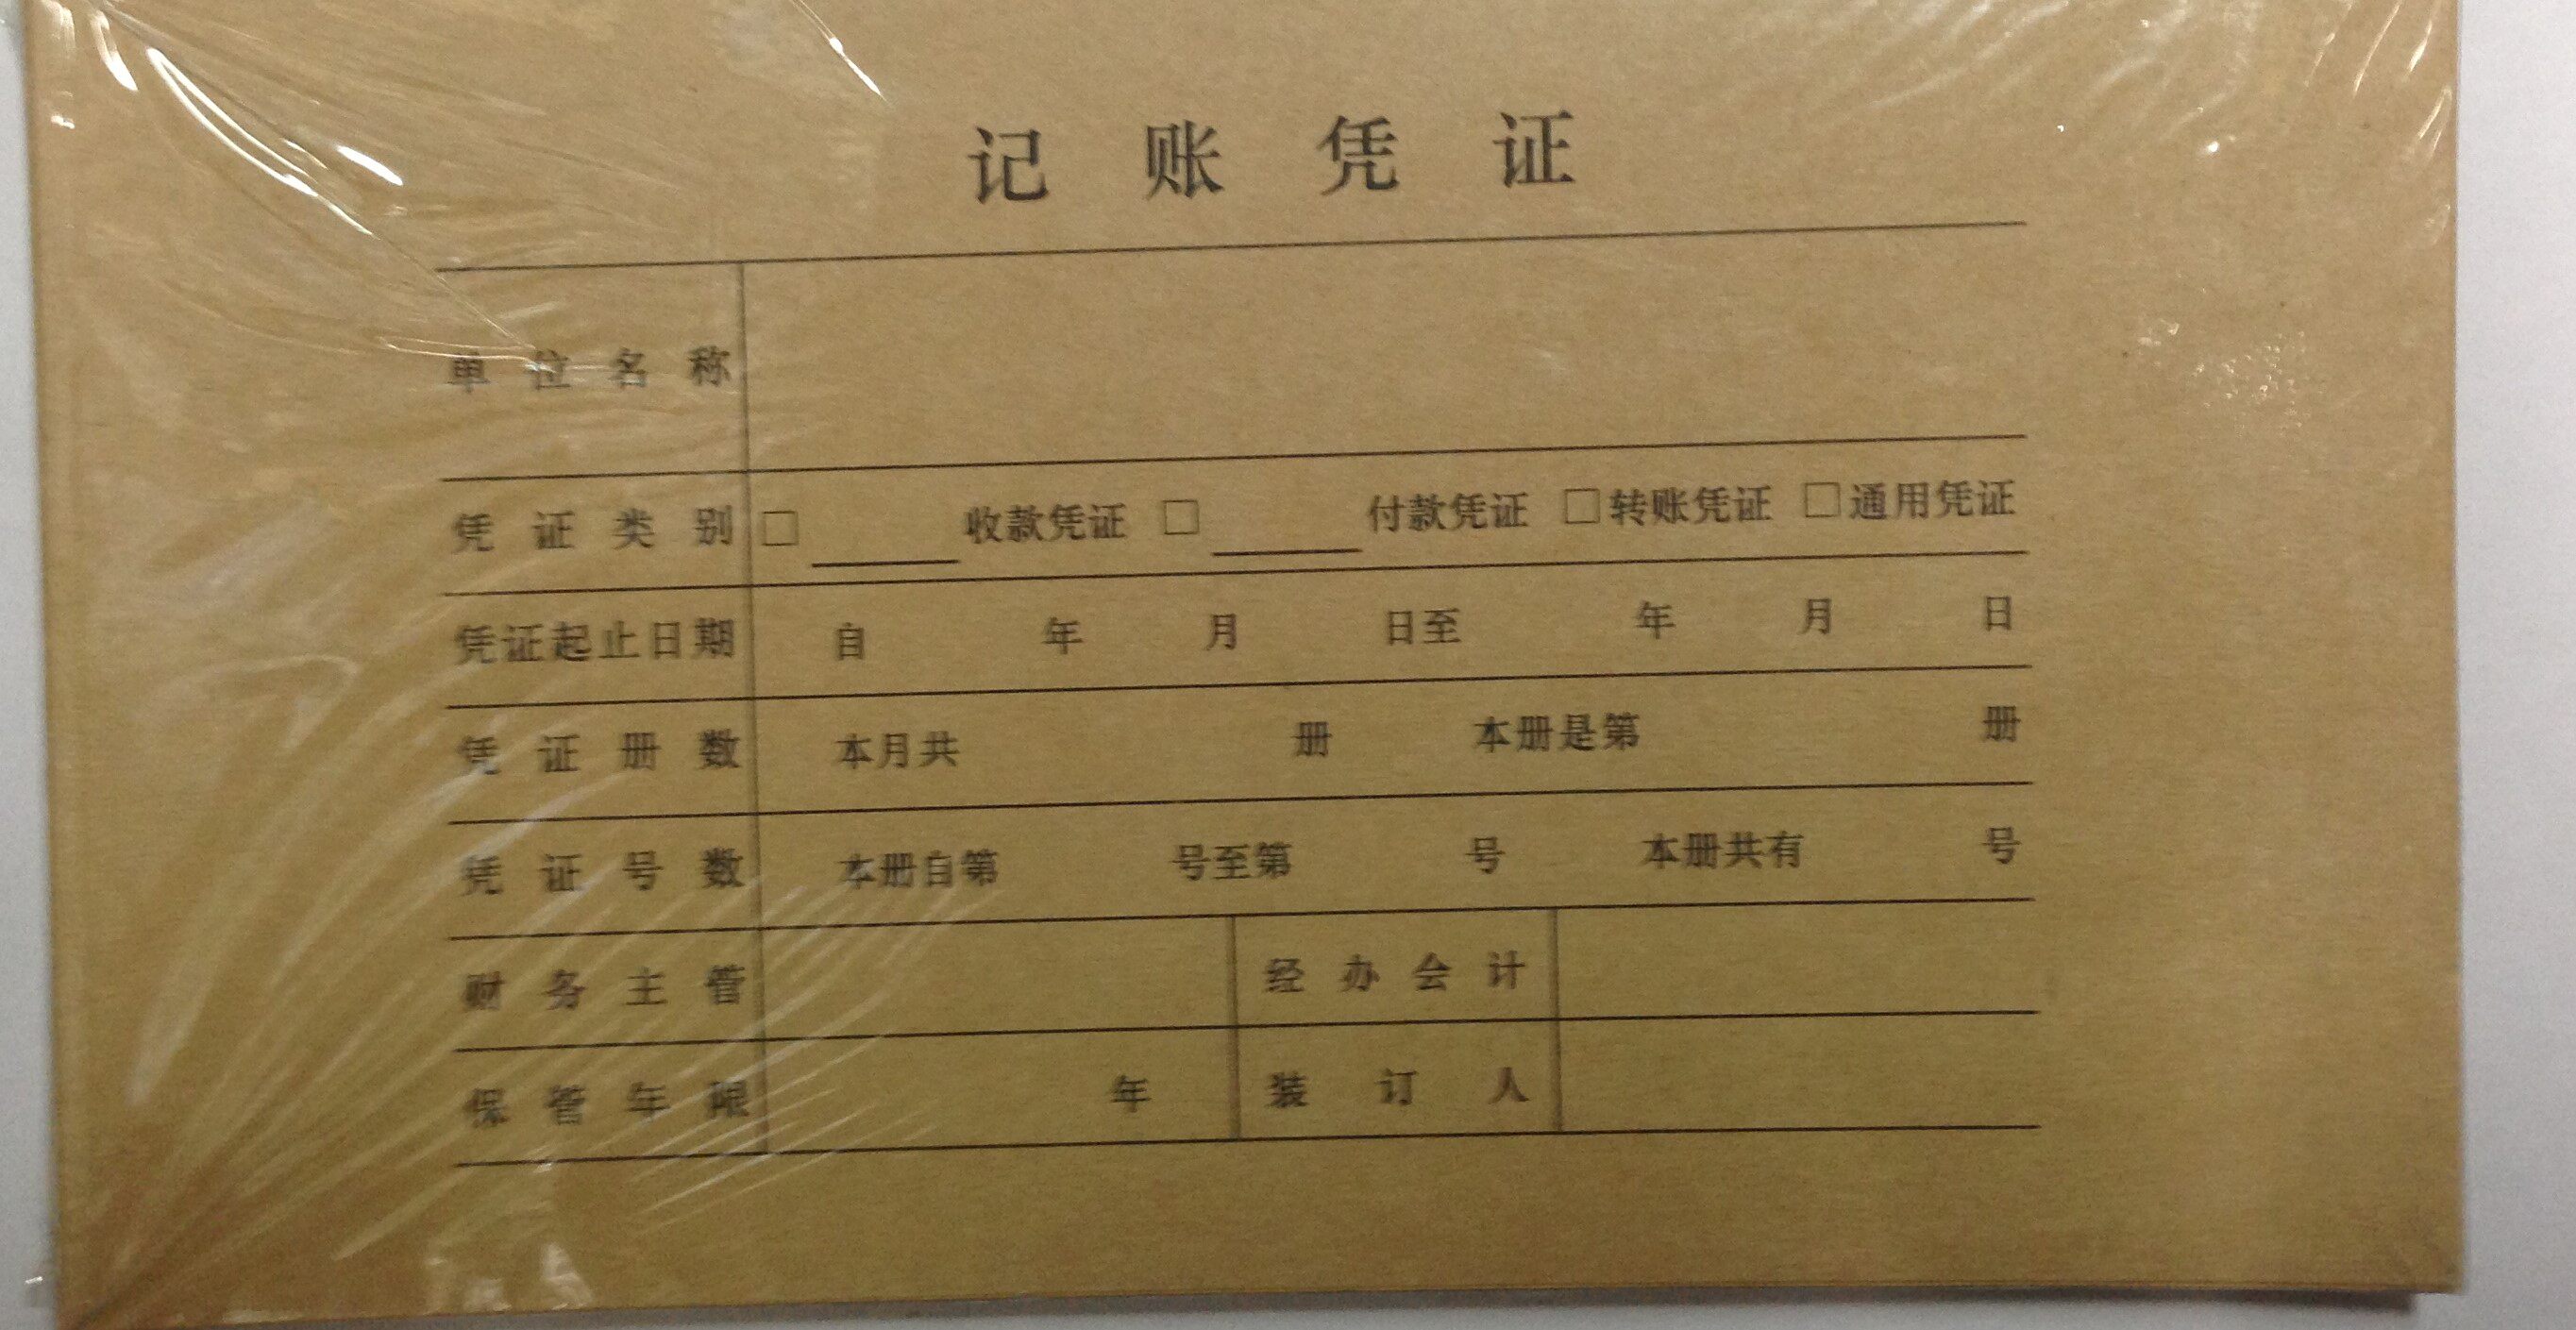 记账凭证
单位名称
凭证类别 □____收款凭证 □____付款凭证 □转账凭证 □通用凭证
凭证起止日期 自 年 月 日至 年 月 日
凭证册数 本月共 册 本册是第 册
凭证号数 本册自第 号至第 号 本册共有 号
财务主管 经办会计
保管年限 年 装订人